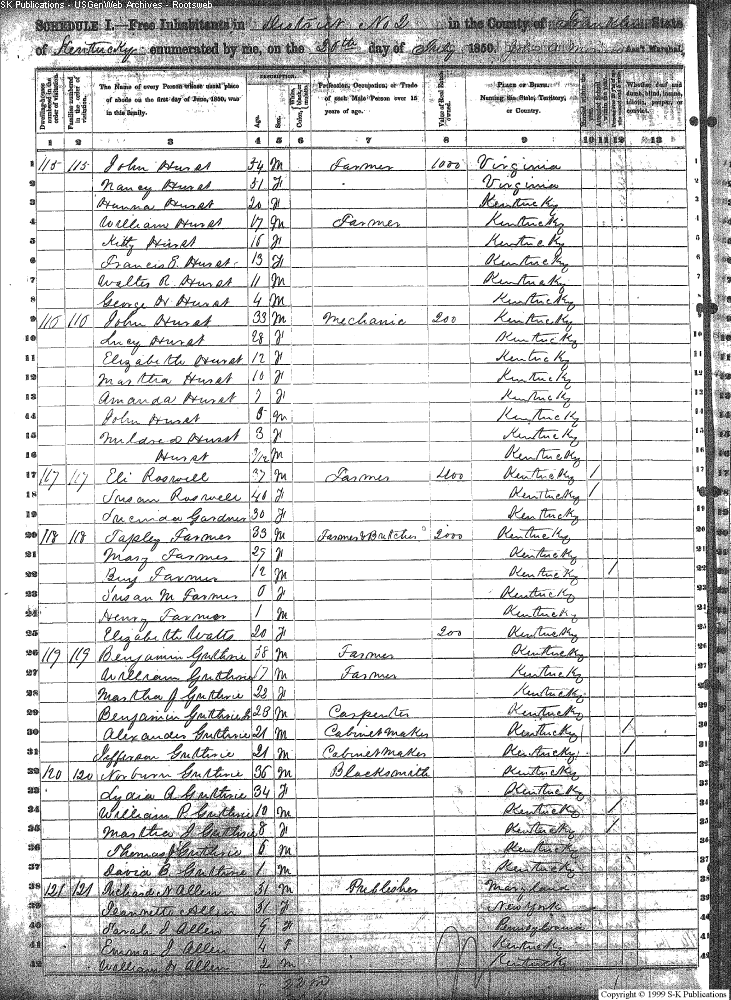 SK Publications - USGenWeb Archives - Rootsweb
SCHEDULE I.—Free Inhabitants in District No 2 in the County of Franklin State
of Kentucky enumerated by me, on the 20th day of July 1850. Ass't Marshal.
Dwelling-houses numbered in the order of visitation.
Families numbered in the order of visitation.
The Name of every Person whose usual place of abode on the first day of June, 1850, was in this family.
DESCRIPTION.
Age.
Sex.
Profession, Occupation, or Trade of each Male Person over 15 years of age.
Value of Real Estate owned.
PLACE OF BIRTH. Naming the State, Territory, or Country.
Whether deaf and dumb, blind, insane, idiotic, pauper, or convict.
1 2 3 4 5 6 7 8 9 10 11 12 13
1 115 115 John Hurst 54 M Farmer 1000 Virginia 1
2 Nancy Hurst 51 F Virginia 2
3 Hanna Hurst 20 F Kentucky 3
4 William Hurst 17 M Farmer Kentucky 4
5 Kitty Hurst 16 F Kentucky 5
6 Francis E. Hurst 13 F Kentucky 6
7 Walter R. Hurst 11 M Kentucky 7
8 George W Hurst 4 M Kentucky 8
9 116 116 John Hurst 33 M Mechanic 200 Kentucky 9
10 Lucy Hurst 28 F Kentucky 10
11 Elizabeth Hurst 12 F Kentucky 11
12 Martha Hurst 10 F Kentucky 12
13 Amanda Hurst 7 F Kentucky 13
14 John Hurst 5 M Kentucky 14
15 Mildred Hurst 3 F Kentucky 15
16 Hurst /12 M Kentucky 16
17 117 117 Eli Roswell 37 M Farmer 400 Kentucky / 17
18 Susan Roswell 40 F Kentucky / 18
19 Lucinda Gardner 30 F Kentucky 19
20 118 118 Tapley Farmer 33 M Farmer & Butcher 2000 Kentucky 20
21 Mary Farmer 29 F Kentucky 21
22 Farmer 12 M Kentucky / 22
23 Susan M Farmer F Kentucky 23
24 Henry Farmer 1 M Kentucky 24
25 Elizabeth Watts 20 F 200 Kentucky 25
26 119 119 Benjamin Guthrie 58 M Farmer Kentucky 26
27 William Guthrie 17 M Farmer Kentucky 27
28 Martha J Guthrie 23 F Kentucky 28
29 Benjamin Guthrie 23 M Carpenter Kentucky 29
30 Alexander Guthrie 21 M Cabinet Maker Kentucky / 30
31 Jefferson Guthrie 21 M Cabinet Maker Kentucky / 31
32 120 120 Norburn Guthrie 36 M Blacksmith Kentucky 32
33 Lydia A Guthrie 34 F Kentucky 33
34 William P. Guthrie 10 M Kentucky / 34
35 Martha J Guthrie 8 F Kentucky / 35
36 Thomas J Guthrie 6 M Kentucky 36
37 David B Guthrie 1 M Kentucky 37
38 121 121 Richard H Allen 31 M Publisher Maryland 38
39 Jeannette Allen 31 F New York 39
40 Sarah J Allen 9 F Pennsylvania 40
41 Emma J Allen 4 F Kentucky 41
42 William H Allen 2 M Kentucky 42
22 M
Copyright © 1999 S-K Publications